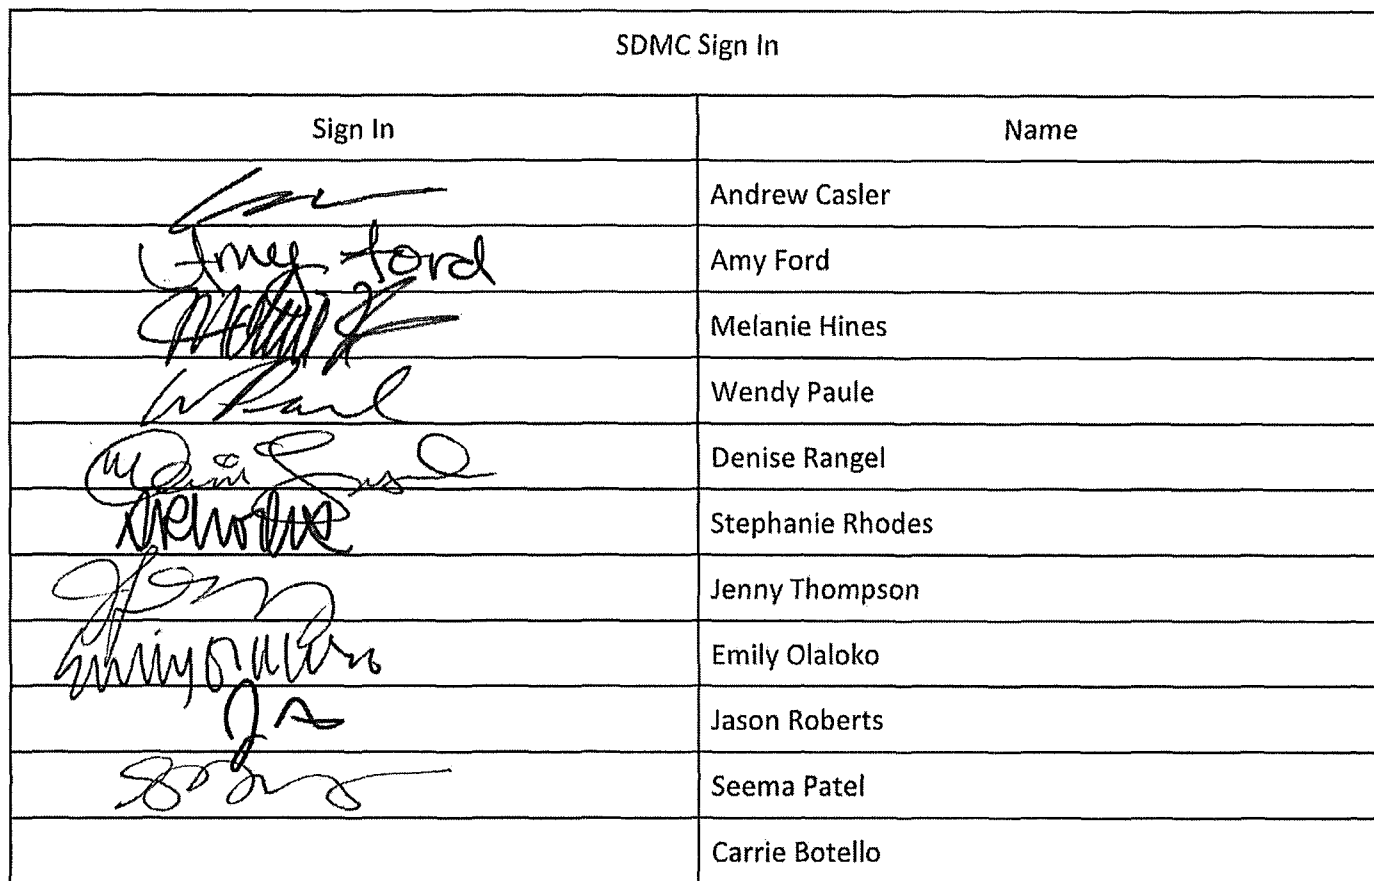 SDMC Sign In
Sign In Name
Andrew Casler
Amy Ford Amy Ford
Melanie Hines
W Paul Wendy Paule
Denise Rangel
Stephanie Rhodes
Jenny Thompson
Emily Olaloko
Jason Roberts
Seema Patel
Carrie Botello